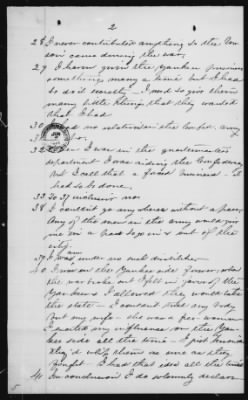 2
28 I never contributed anything to the Con
cause during the war.
29 I have given the Yankee prisoners
something many a time but I had
to do it secretly - I used to give them
many little things that they wanted
that I had
30 had no relation in the Confed. army
32 I was in the quartermaster
department I was aiding the Confederacy
but I call that a forced business - it
had to be done.
33 To 37 inclusive no.
38 I couldn't go any where without a pass.
Any of the men in the army would give
me a pass to go in & out of the
city.
39 I am under no such disability.
40 I was on the Yankee side forever, when
the war broke out I felt in favor of the
Yankees I allowed they would take
the state - I couldn't tell any body
but my wife - she was a free woman.
I exerted my influence on the Yan
kee side all the time - I just knew
they'd whip them as sure as they
fought - I had that idea all the time
41 In conclusion I do solemnly declare
5